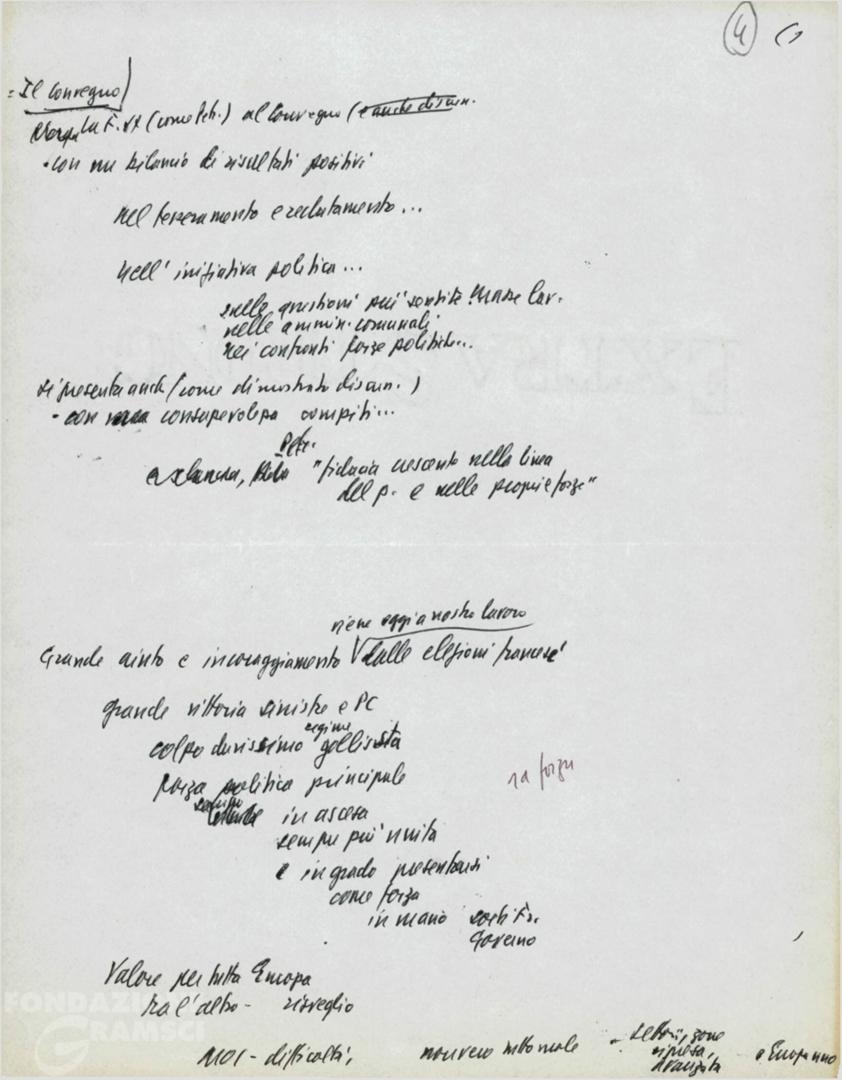 4
= Il Convegno
La F. (come Petr.) al Convegno (e anche discus.
- con un bilancio di risultati positivi
nel tesseramento e reclutamento...
nell'iniziativa politica...
sulle questioni più sentite masse lav.
nelle ammin. comunali
nei confronti forze politiche...
si presenta anche (come dimostrato discus.)
- con consapevolezza compiti...
Petr.
"fiducia crescente nella linea
del p. e nelle proprie forze"
viene oggi a nostro lavoro
Grande aiuto e incoraggiamento dalle elezioni francesi
grande vittoria sinistre e PC
regime
colpo durissimo gollista
forza politica principale
1a forza
sempre
in ascesa
sempre più unita
e in grado presentarsi
come forza
in mano sorti Fr.
Governo
Valore per tutta Europa
tra l'altro - risveglio
FONDAZIONE
GRAMSCI
NOI - difficoltà,
settori, zone
ripresa,
avanzata